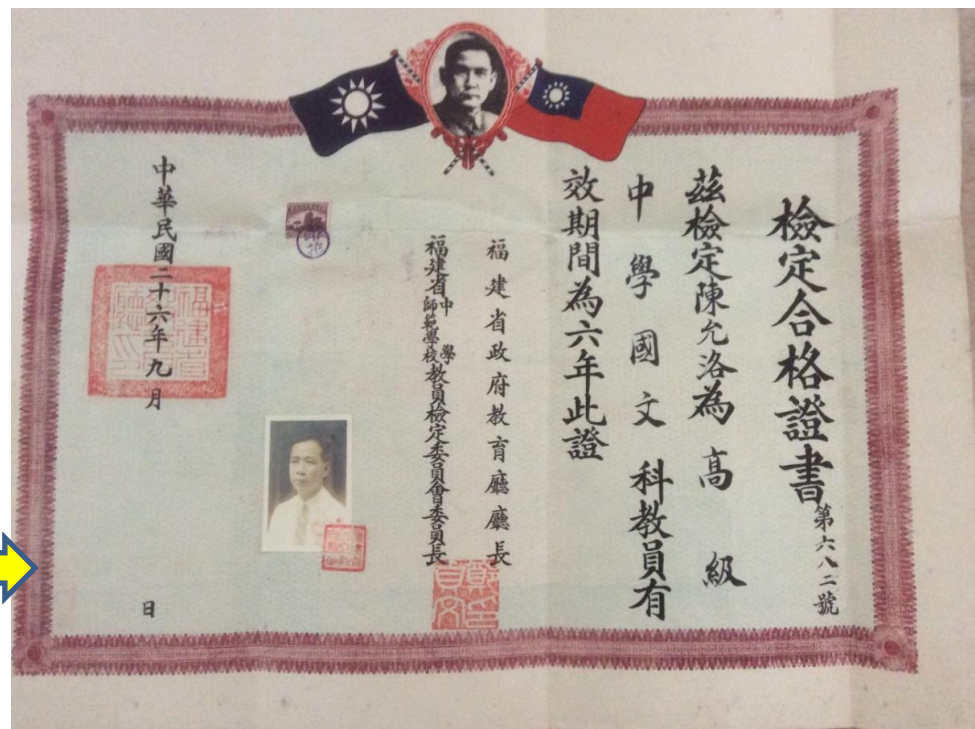 檢定合格證書
第六八二號
茲檢定陳允洛為高級
中學國文科教員有
效期間為六年此證
福建省政府教育廳廳長
福建省中學師範學校教員檢定委員會委員長
中華民國二十六年九月 日